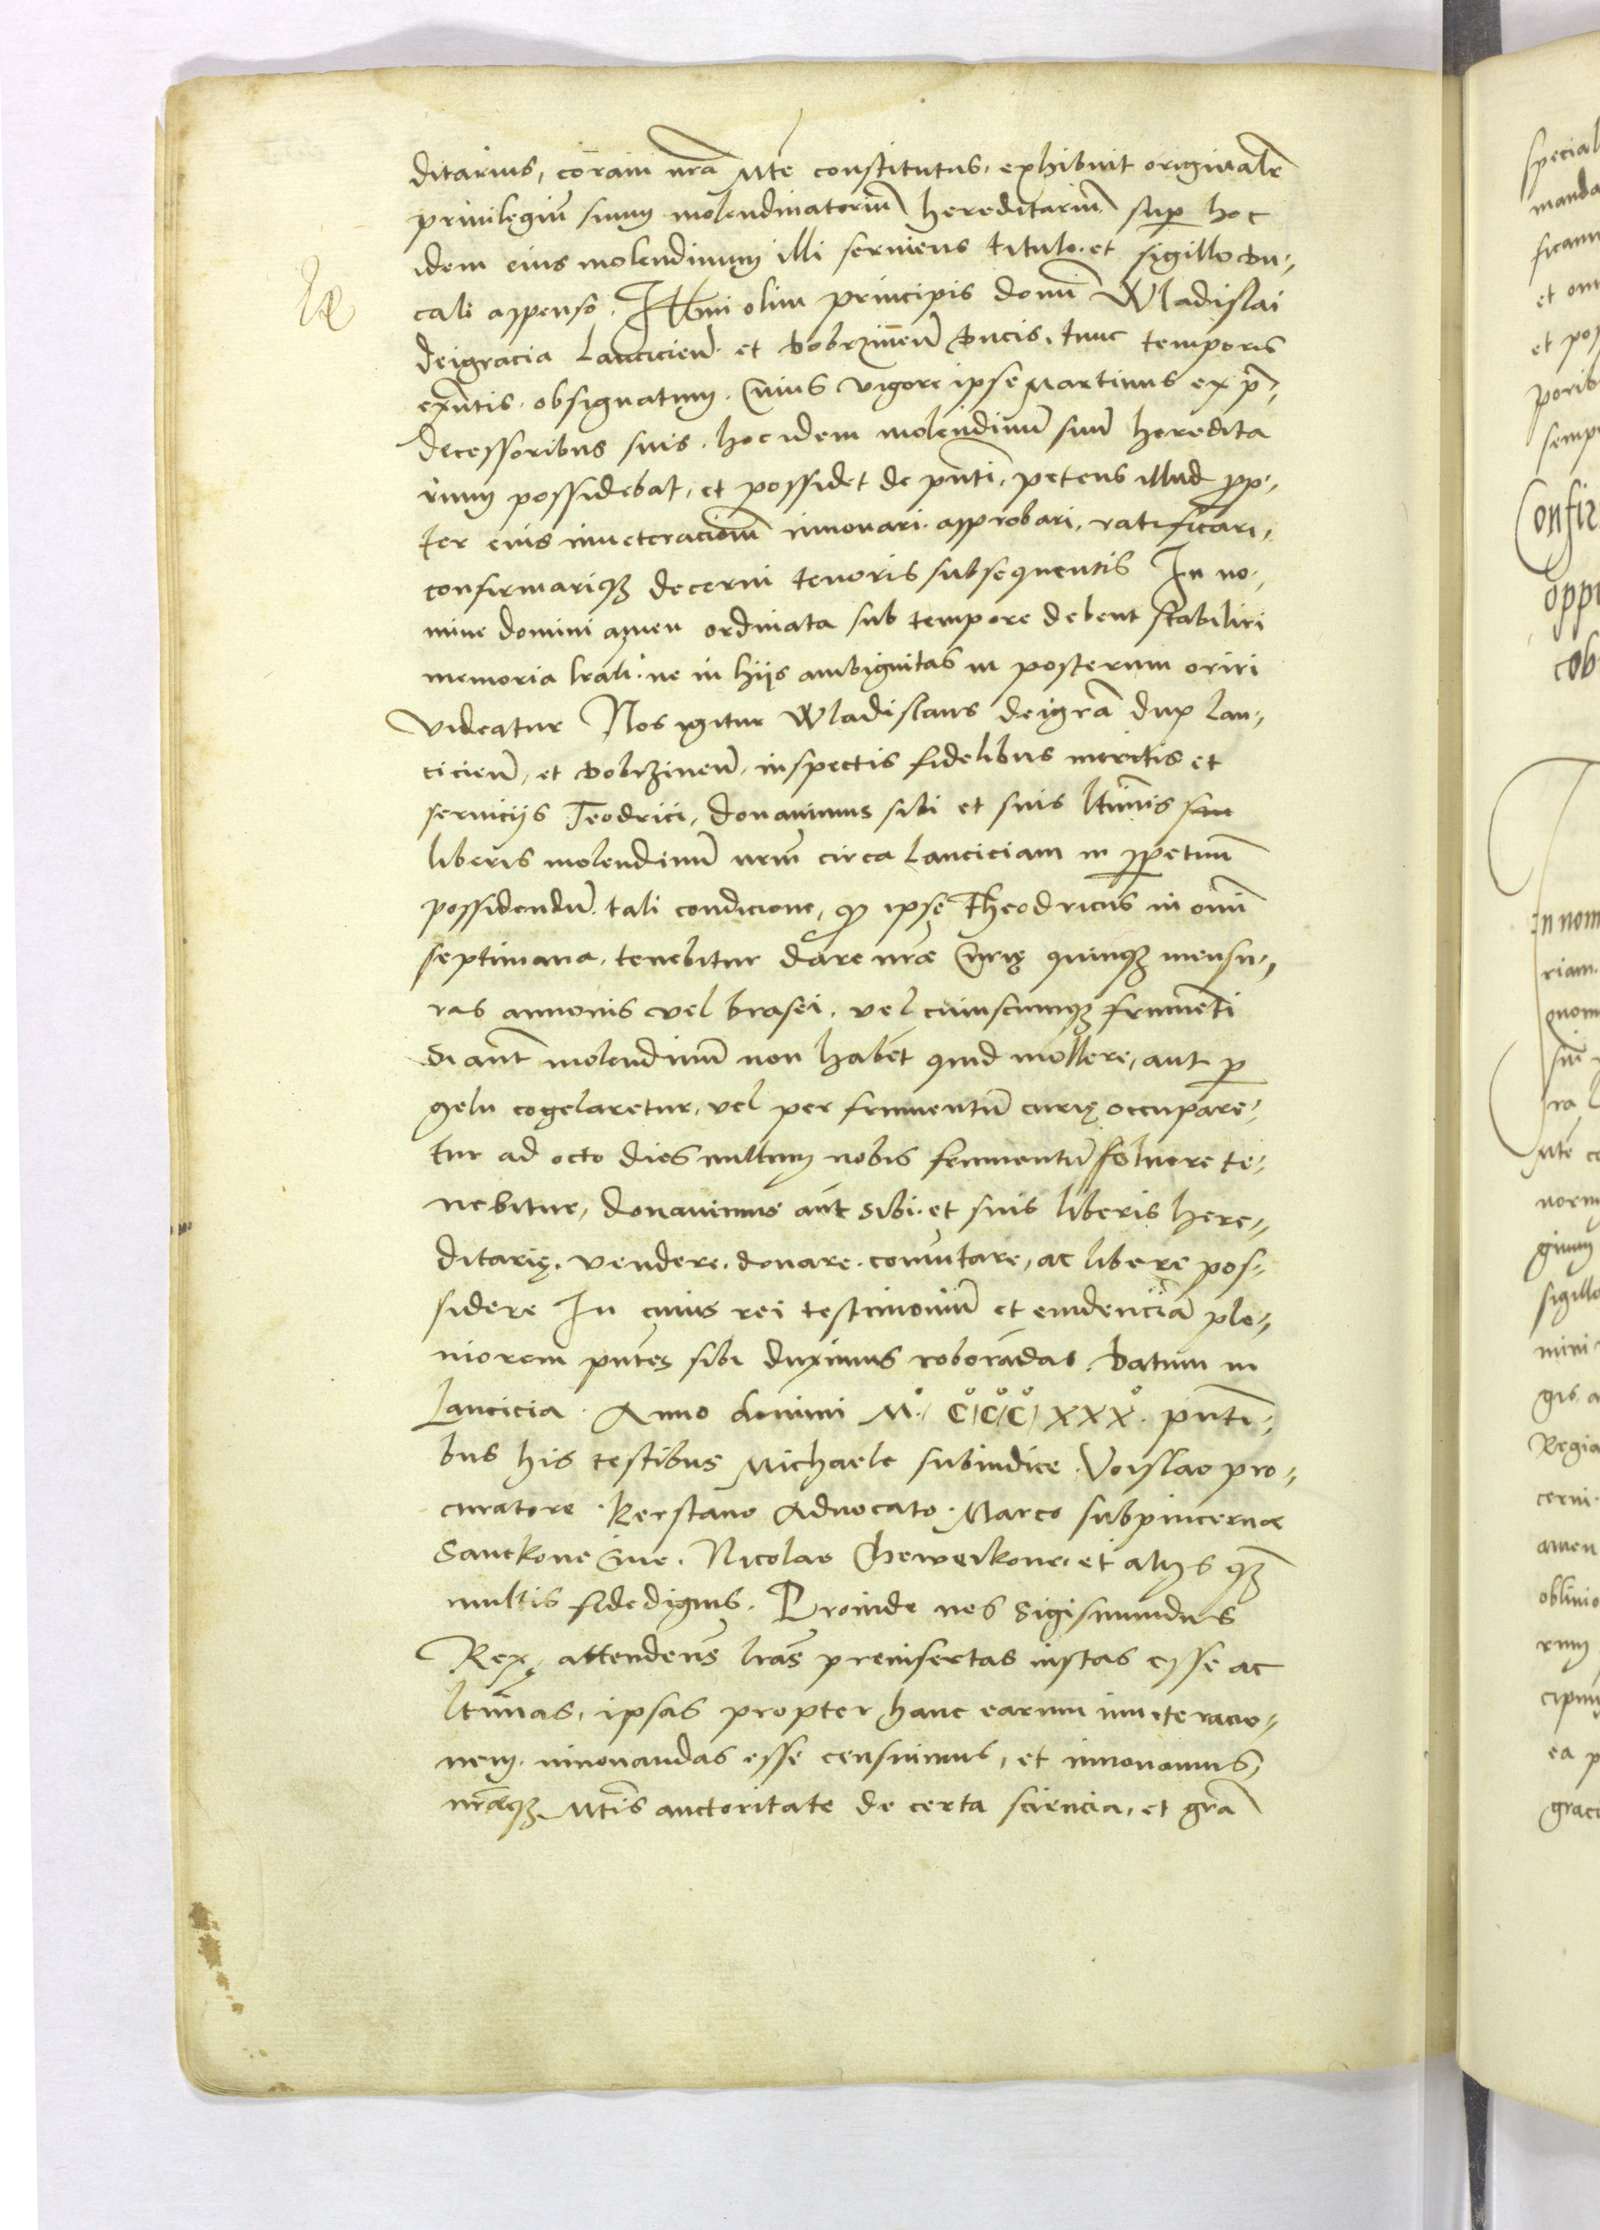 ditarius, coram nrã Mte constitutus, exhibuit originale
privilegiũ suum molendinatoriũ hereditariũ sup hoc
idem eius molendinum illi serviens titulo et sigillo du-
cali appenso. Illmi olim principis domi Wladislai
deigracia Lancicien̄ et Dobrzinen̄ Ducis, tunc temporis
exñtis obsignatum. Cuius vigore ipse Martinus ex p̄-
decessoribus suis hoc idem molendinũ suũ heredita
rium possidebat, et possidet de pñti, petens illud prop-
ter eius inveteracionẽ innovari approbari, ratificari,
confirmariq; decerni tenoris subsequentis In no-
mine domini amen ordinata sub tempore debent stabiliri
memoria lrali ne in hijs ambiguitas in posterum oriri
videatur Nos igitur Wladislaus deigrã dux Lan-
cicien̄, et Dobrzinen̄, inspectis fidelibus meritis et
servicijs Teodrici, donavimus sibi et suis ltimis seu
liberis molendinũ nrm̃ circa Lanciciam in ppetuũ
possidendũ tali condicione, q̃ ipse Theodricus in omi
septimana, tenebitur dare nrẽ Curię quinq; mensu-
ras annonis vel brasei, vel cuiuscunq; frumẽti
Si aut̃ molendinũ non habet quid mollere, aut p
gelu cogelaretur, vel per frumentũ curię occupare-
tur ad octo dies nullum nobis frumentũ solvere te-
nebitur, donavimus aut̃ sibi et suis liberis here-
ditarię, vendere, donare, comutare, ac libere pos-
sidere In cuius rei testimoniũ et evidenciã ple-
niorem pñtes sibi duximus roborãdas. Datum in
Lancicia Anno domini M° C°C°C° XXX° pñti-
bus his testibus Michaele subiudice Voislao pro-
curatore Kerstano Advocato Marco subpincerna
Sanckone Nicolao et alijs q̃
multis fidedignis. Proinde nos Sigismundus
Rex, attendens lras preinsertas iustas esse ac
ltimas, ipsas propter hanc earum inveteracio-
nem innovandas esse censuimus, et innovamus,
nrãq; Mtis auctoritate de certa sciencia, et grã